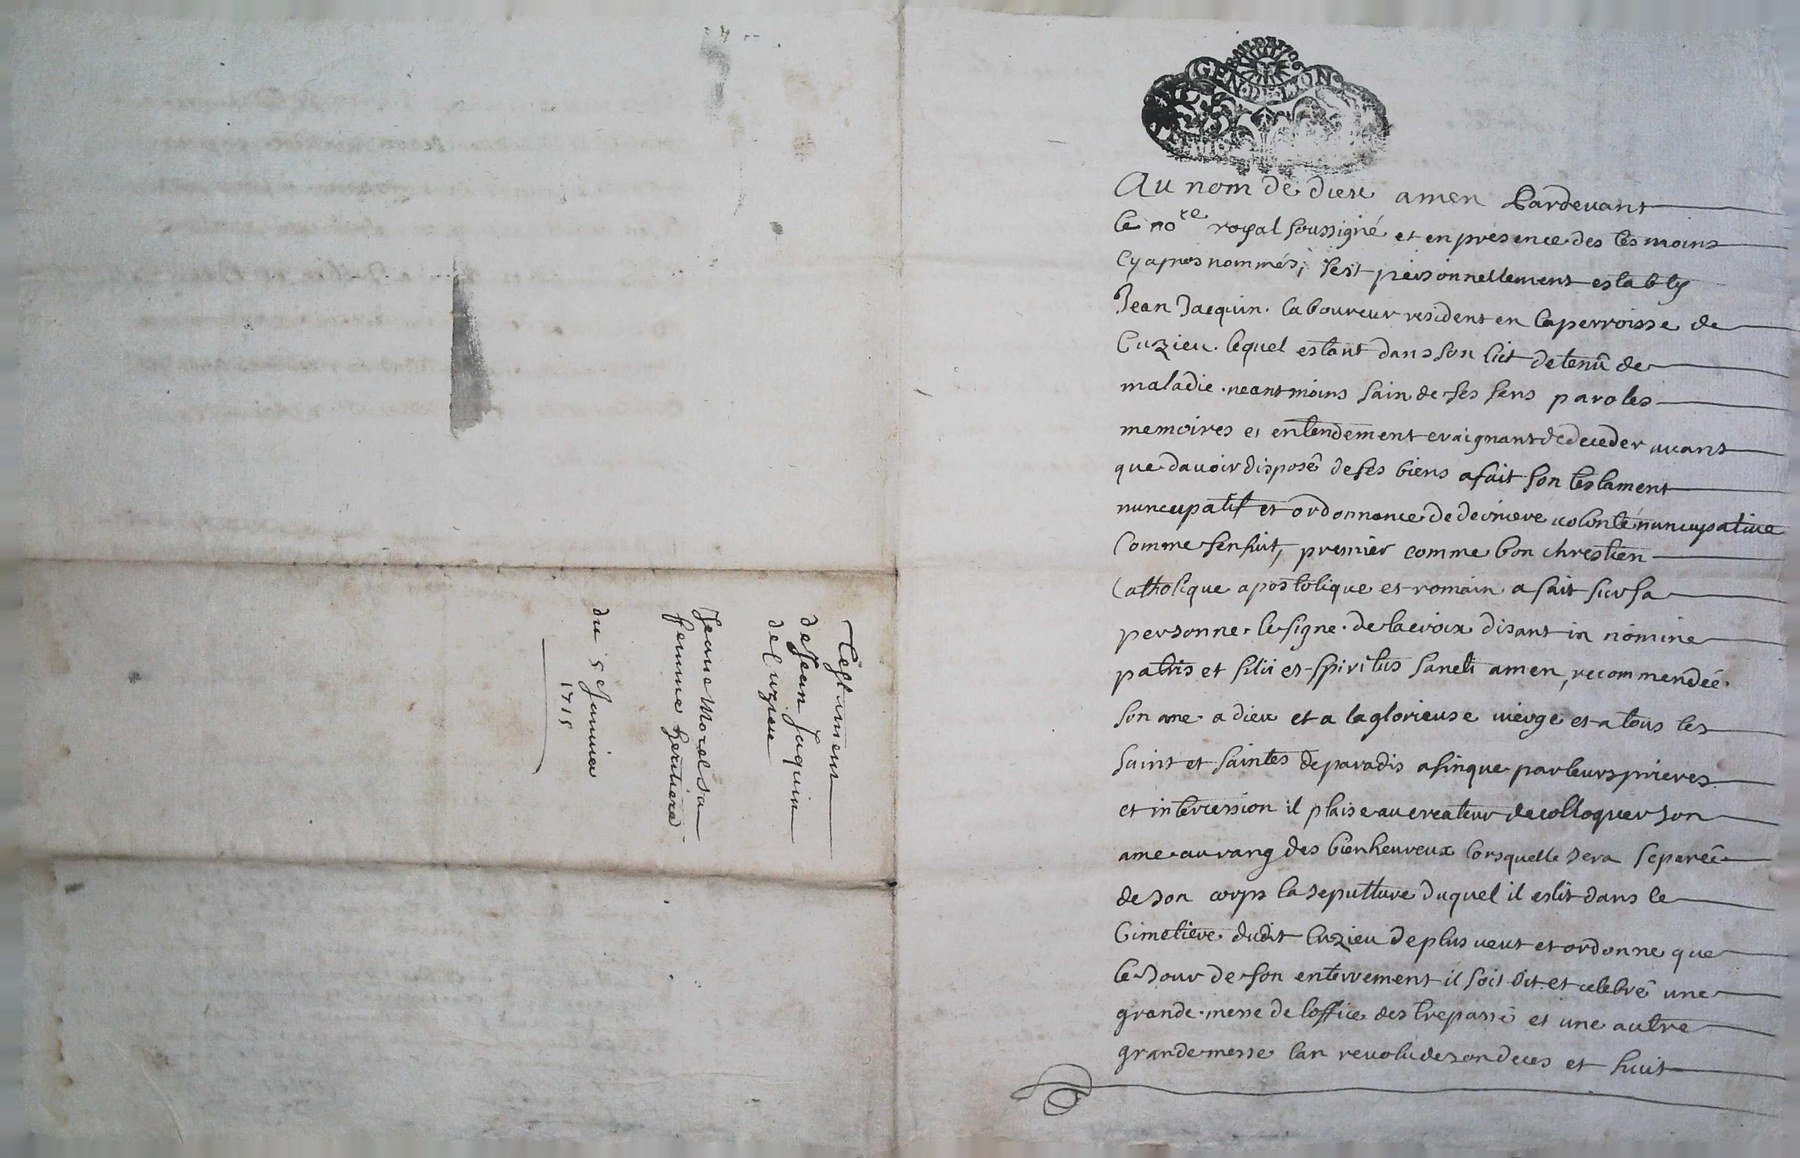 Testament
de Jean Jaquin
de Cuzieu
Jeane Morel sa
femme heritiere
du 5e Janvier
1715
GEN DE LION
Au nom de dieu amen Pardevant
le nore royal soussigné et en presence des tesmoins
cy apres nommés, s'est personnellement estably
Jean Jacquin laboureur resident en la perroisse de
Cuzieu lequel estant dans son lict detenû de
maladie neantmoins sain de ses sens paroles
memoires et entendement craignant de deceder avant
que davoir disposé de ses biens a fait son testament
nuncupatif et ordonnance de derniere volonté nuncupative
Comme sensuit, premier comme bon chrestien
Catholique apostolique et romain a fait sur sa
personne le signe de la croix disant in nomine
patris et filii et spiritus sancti amen, recommendée
son ame a dieu et a la glorieuse vierge et a tous les
saint et saintes de paradis afin que par leurs prieres
et intercession il plaise au createur de colloquer son
ame au rang des bienheureux lorsquelle sera separée
de son corps la sepulture duquel il eslit dans le
Cimetiere dudit Cuzieu de plus veut et ordonne que
le Jour de son enterrement il soit dit et celebré une
grande messe de loffice des trepassé et une autre
grande messe lan revolu de son deces et huit